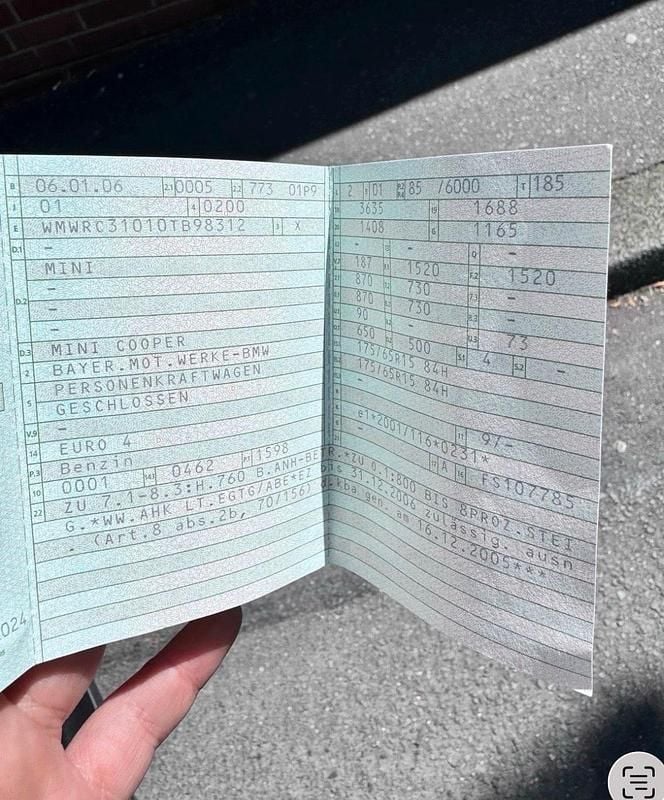 B 06.01.06 2.1 0005 2.2 773 01P9
J 01 4 0200
E WMWRC31010TB98312 3 X
D.1 -
MINI
-
D.2 -
-
D.3 MINI COOPER
2 BAYER.MOT.WERKE-BMW
5 PERSONENKRAFTWAGEN
GESCHLOSSEN
V.9 -
14 EURO 4
P.3 Benzin
10 0001 14.1 0462 P.1 1598
22 ZU 7.1-8.3:H.760 B.ANH-BETR.*ZU O.1:800 BIS 8PROZ.STEI
G.*WW.AHK LT.EGTG/ABE*EZ bis 31.12.2006 zulässig. ausn
. (Art.8 abs.2b, 70/156) d.kba gen. am 16.12.2005***
024
L 2 9 01 P.2 P.4 85 /6000 T 185
18 3635 19 1688
20 1408 G 1165
- - Q -
187 1520 F.2 1520
870 730 7.3 -
870 730 8.3 -
90 - U.2 -
650 500 U.3 73
175/65R15 84H S.1 4 S.2 -
175/65R15 84H
-
-
e1*2001/116*0231* 11 9/-
- 17 A 16 FS107785